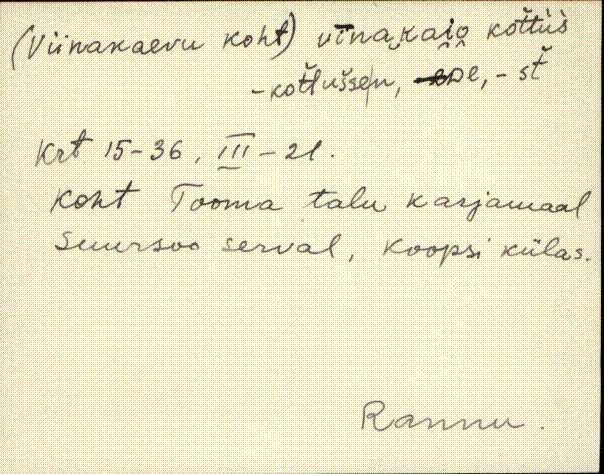 (Viinakaevu koht) vīnakaio kot̆t̆us
-kot̆t̆uššen, -De, -st̆
Krt 15-36, III-21.
Koht Tooma talu karjamaal
Suursoo serval, Koopsi külas.
Rannu.